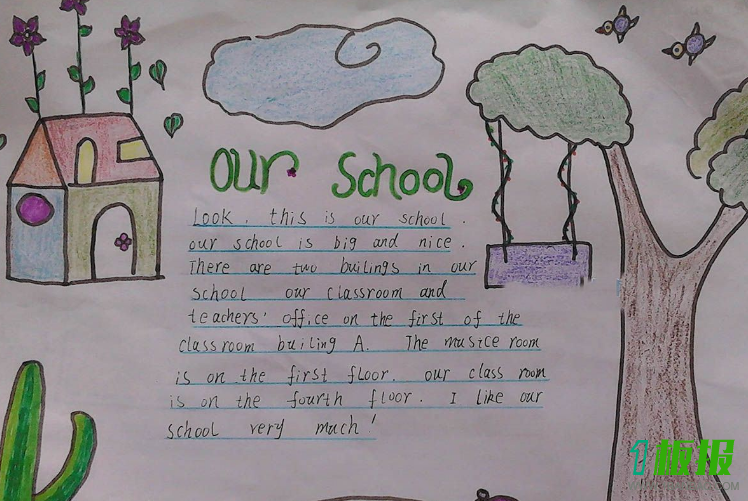 our School
Look. this is our school.
our school is big and nice.
There are two builings in our
school our classroom and
teachers' office on the first of the
classroom builing A. The musice room
is on the first floor. our class room
is on the fourth floor. I like our
school very much!
1板报